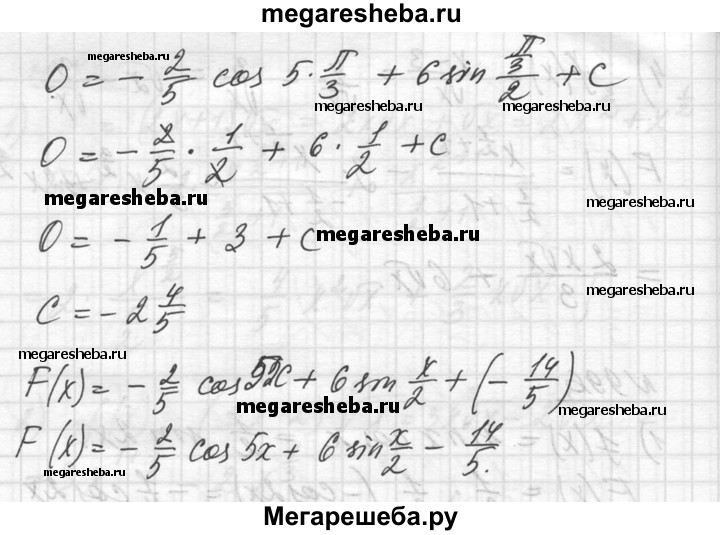 megaresheba.ru
megaresheba.ru
0 = - 2/5 cos 5 · π/3 + 6 sin (π/3)/2 + C
megaresheba.ru megaresheba.ru
0 = - 2/5 · 1/2 + 6 · 1/2 + C
megaresheba.ru megaresheba.ru
0 = - 1/5 + 3 + C megaresheba.ru
C = - 2 4/5 megaresheba.ru
megaresheba.ru
F(x) = - 2/5 cos 5x + 6 sin x/2 + (- 14/5)
megaresheba.ru megaresheba.ru
F(x) = - 2/5 cos 5x + 6 sin x/2 - 14/5.
megaresheba.ru
Мегарешеба.ру